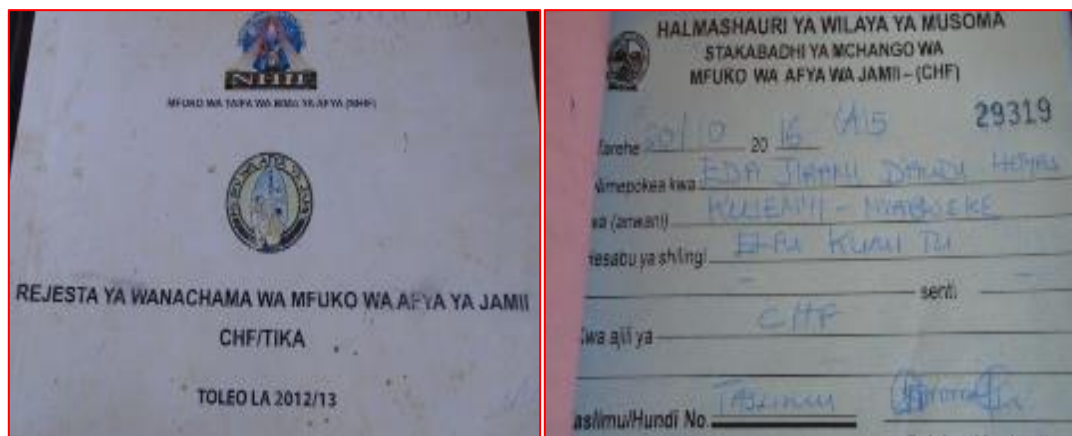 NHIF
MFUKO WA TAIFA WA BIMA YA AFYA (NHIF)
REJESTA YA WANACHAMA WA MFUKO WA AFYA YA JAMII
CHF/TIKA
TOLEO LA 2012/13
HALMASHAURI YA WILAYA YA MUSOMA
STAKABADHI YA MCHANGO WA
MFUKO WA AFYA WA JAMII – (CHF)
29319
Tarehe 20/10 20 16
Nimepokea kwa EDA
wa (anwani)
Hesabu ya shilingi ELFU KUMI TU
senti
Kwa ajili ya CHF
aslimu/Hundi No. TASLIMU